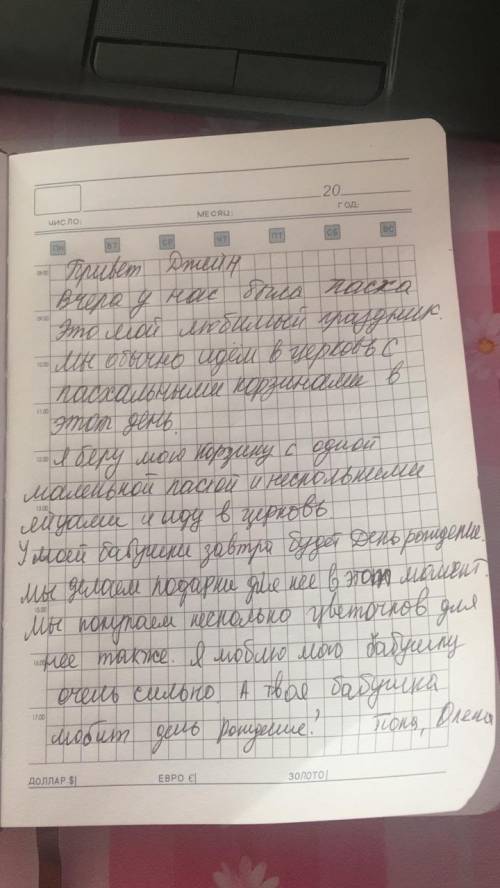 20
ЧИСЛО: МЕСЯЦ: ГОД:
ПН ВТ СР ЧТ ПТ СБ ВС
09:00 Привет Джейн
Вчера у нас была пасха
09:00 Это мой любимый праздник.
10:00 Мы обычно идём в церковь с
пасхальными корзинами в
11:00 этот день.
12:00 Я беру мою корзину с одной
маленькой паской и несколькими
13:00 яйцами и иду в церковь
У моей бабушки завтра будет День рождение.
Мы делаем подарки для нее в этот момент.
15:00 Мы покупаем несколько цветочков для
нее также. Я люблю мою бабушку
16:00 очень сильно. А твоя бабушка
17:00 любит день рождение? Пока, Олена
ДОЛЛАР $| ЕВРО €| ЗОЛОТО|